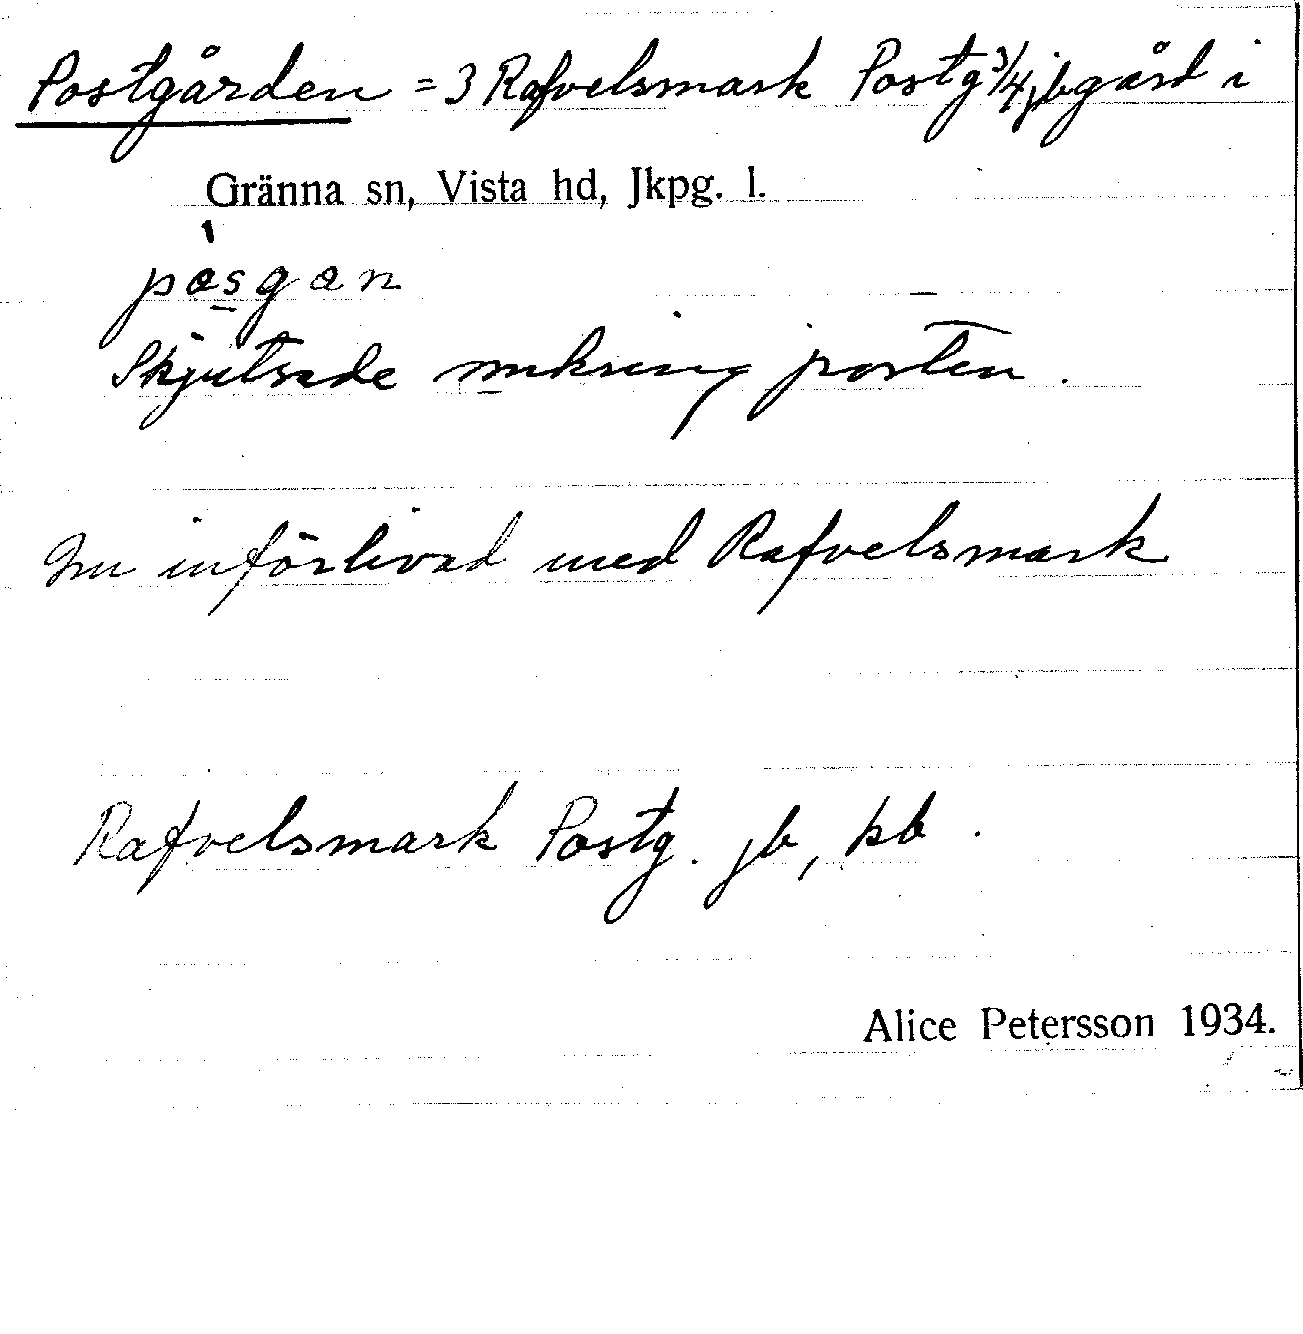 Postgården = 3 Rafvelsmark Postg 3/4 jbgård i
Gränna sn, Vista hd, Jkpg. l.
pàsgan
Skjutsade omkring posten.
Nu införlivad med Rafvelsmark
Rafvelsmark Postg. jb, kb.
Alice Petersson 1934.